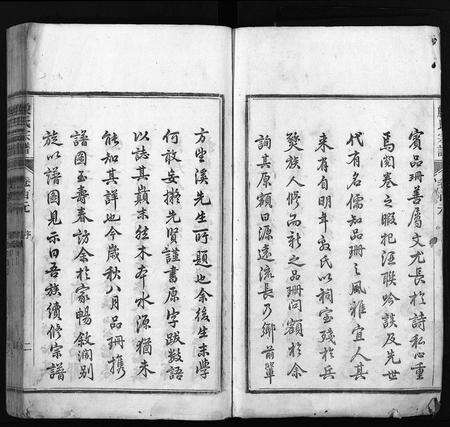 賓品珊善屬文尤長於詩私心重
焉閱卷之暇把酒聯吟談及先世
代有名儒知品珊之風雅宜人其
來有自明年殷氏以祠室殘於兵
燹族人修而新之品珊問額於余
詢其原額曰源遠流長乃鄉前輩
方望溪先生所題也余後生末學
何敢妄擬先賢謹書原字跋數語
以誌其巔末然木本水源猶未
能知其詳也今歲秋八月品珊攜
譜圖至壽春訪余於家暢敘闊別
旋以譜圖見示曰吾族續修宗譜
卷首元 序
二